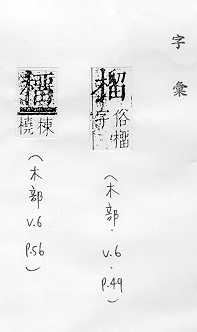 字彙
榴
俗榴
字
(木部·v.6·p.49)
棟
橈
(木部 v.6 p.56)